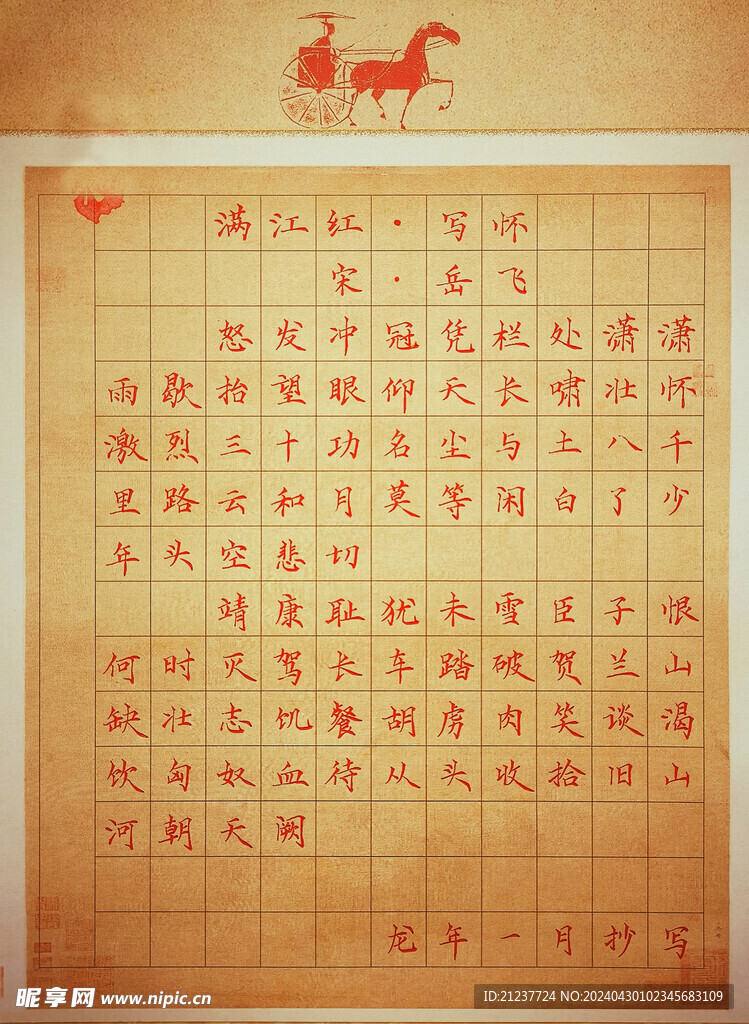 满江红·写怀
宋·岳飞
怒发冲冠凭栏处潇潇
雨歇抬望眼仰天长啸壮怀
激烈三十功名尘与土八千
里路云和月莫等闲白了少
年头空悲切
靖康耻犹未雪臣子恨
何时灭驾长车踏破贺兰山
缺壮志饥餐胡虏肉笑谈渴
饮匈奴血待从头收拾旧山
河朝天阙
龙年一月抄写
昵享网 www.nipic.cn
ID:21237724 NO:20240430102345683109